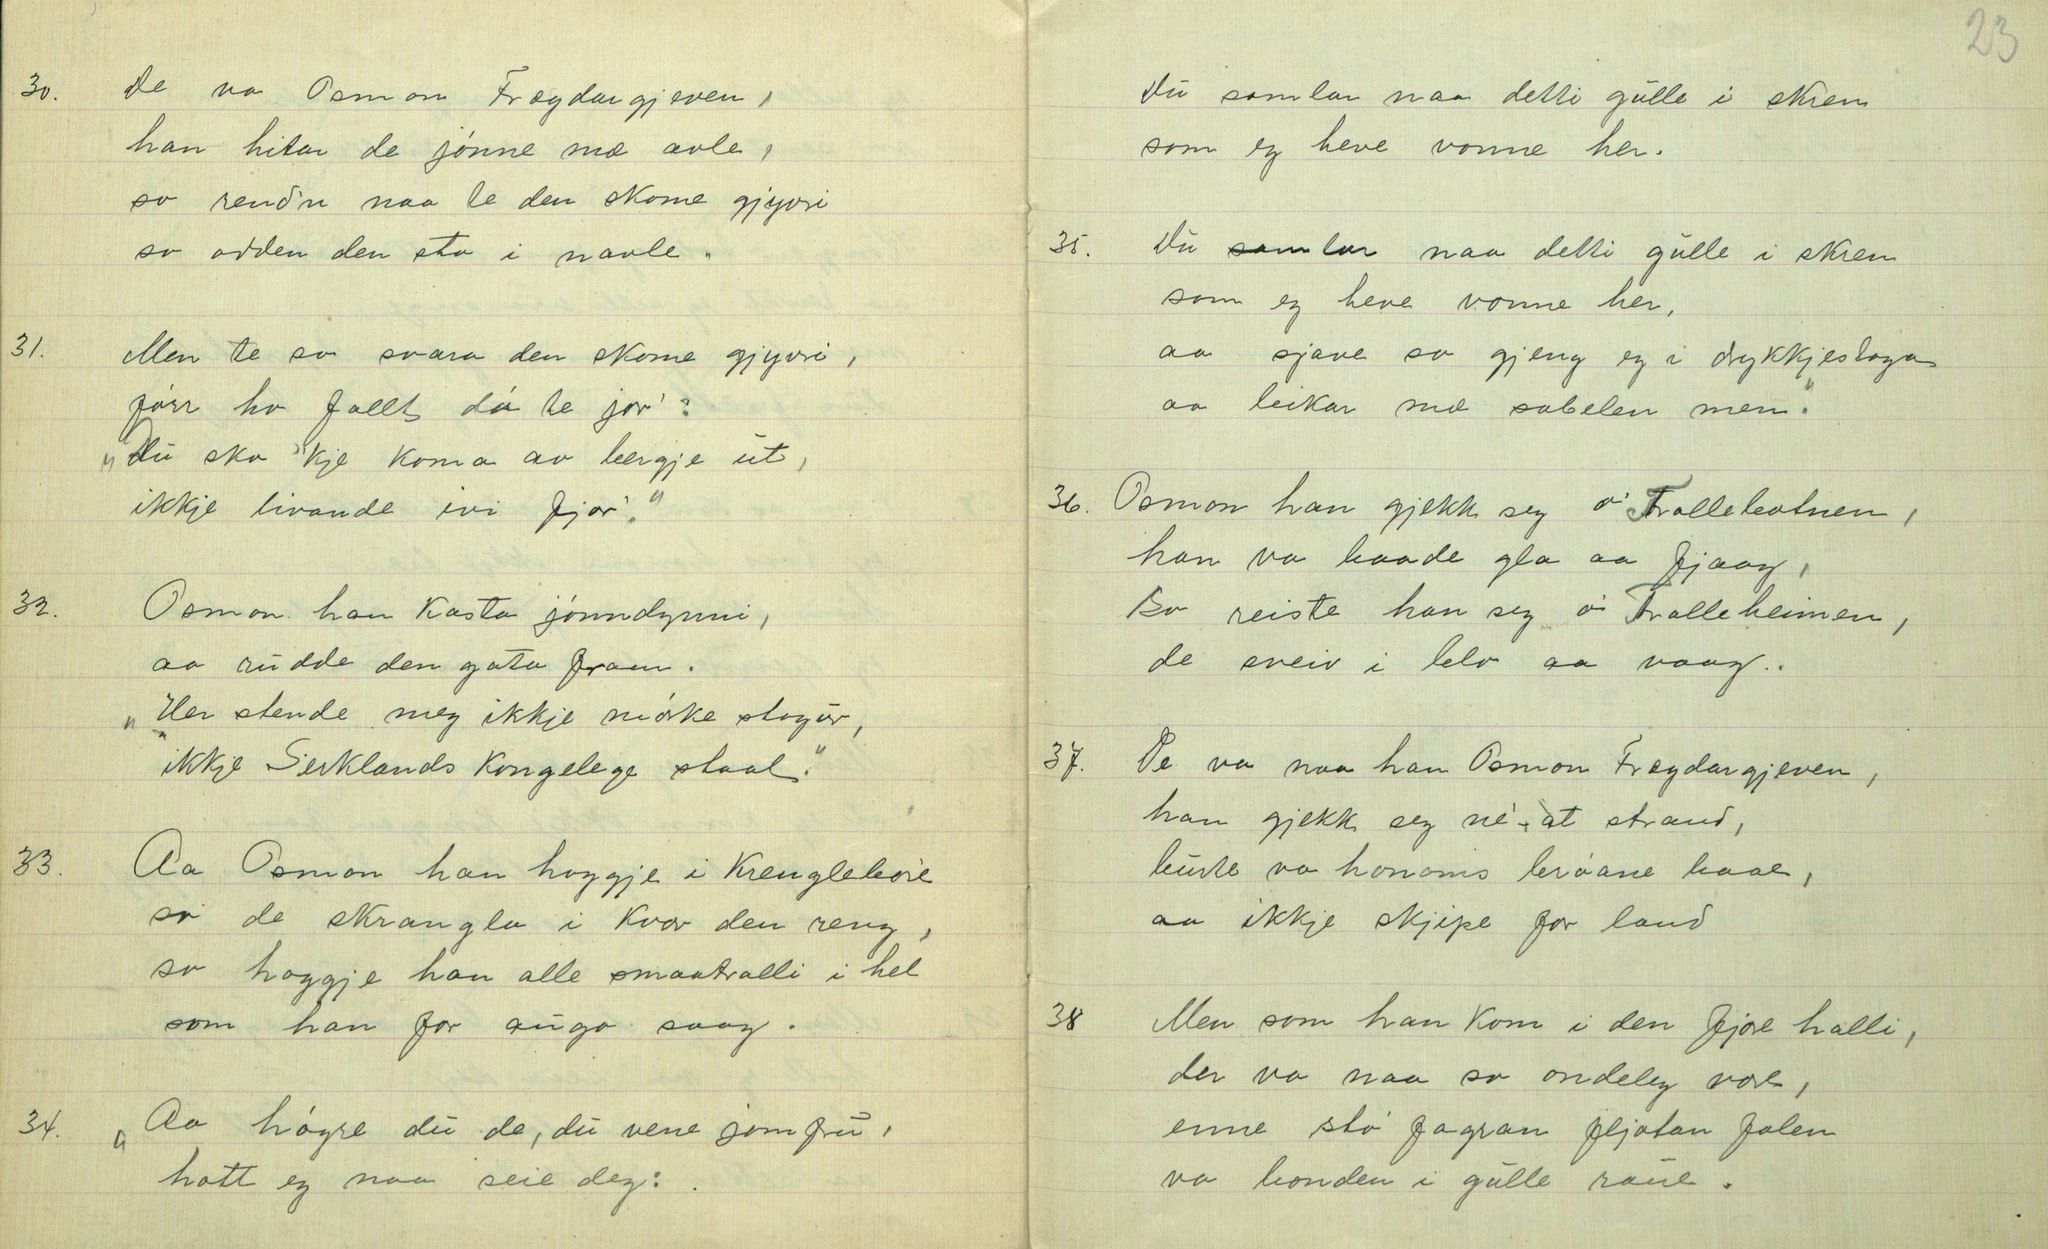 30. De va Osmon Frægdargjeven,
han hitar de jónne mæ avle,
so rend'n naa te den skome gjyvri
so odden den sto i navle.
31. Men te so svara den skome gjyvri,
fórr ho fallt dá te jor':
"Du ska 'kje koma av bergje út,
ikkje livande ivi fjor'."
32. Osmon han kasta jónndynni,
aa rudde den gata fram.
"Her stende meg ikkje mórke stogúr,
ikkje Serklands kongelege staal."
33. Aa Osmon han hoggje i krengleboré
so de skrangla i kvar den reng,
so hoggje han alle smaatrolli i hel
som han for augo saag.
34. "Aa hógre dú de, dú vene jomfrú,
hott eg naa seie deg:
23
Dú samlar naa detti gúlle i skrem
som eg heve vonne her.
35. Dú samlar naa detti gúlle i skrem
som eg heve vonne her,
aa sjave so gjeng eg i drykkjestoga
aa leikar mæ sabelen men."
36. Osmon han gjekk seg ó' Trollebotnen,
han va baade gla aa fjaag,
so reiste han seg ó' Trolleheimen,
de sveiv i lelv aa vaag.
37. De va naa han Osmon Frægdargjeven,
han gjekk seg ne'-at strand,
burte va honoms bróane baae,
aa ikkje skjipe for land
38 Men som han kom i den fjore halli,
der va naa so ondeleg vorl,
enne stó fagran fljotan folen
va bonden i gúlle raúe.